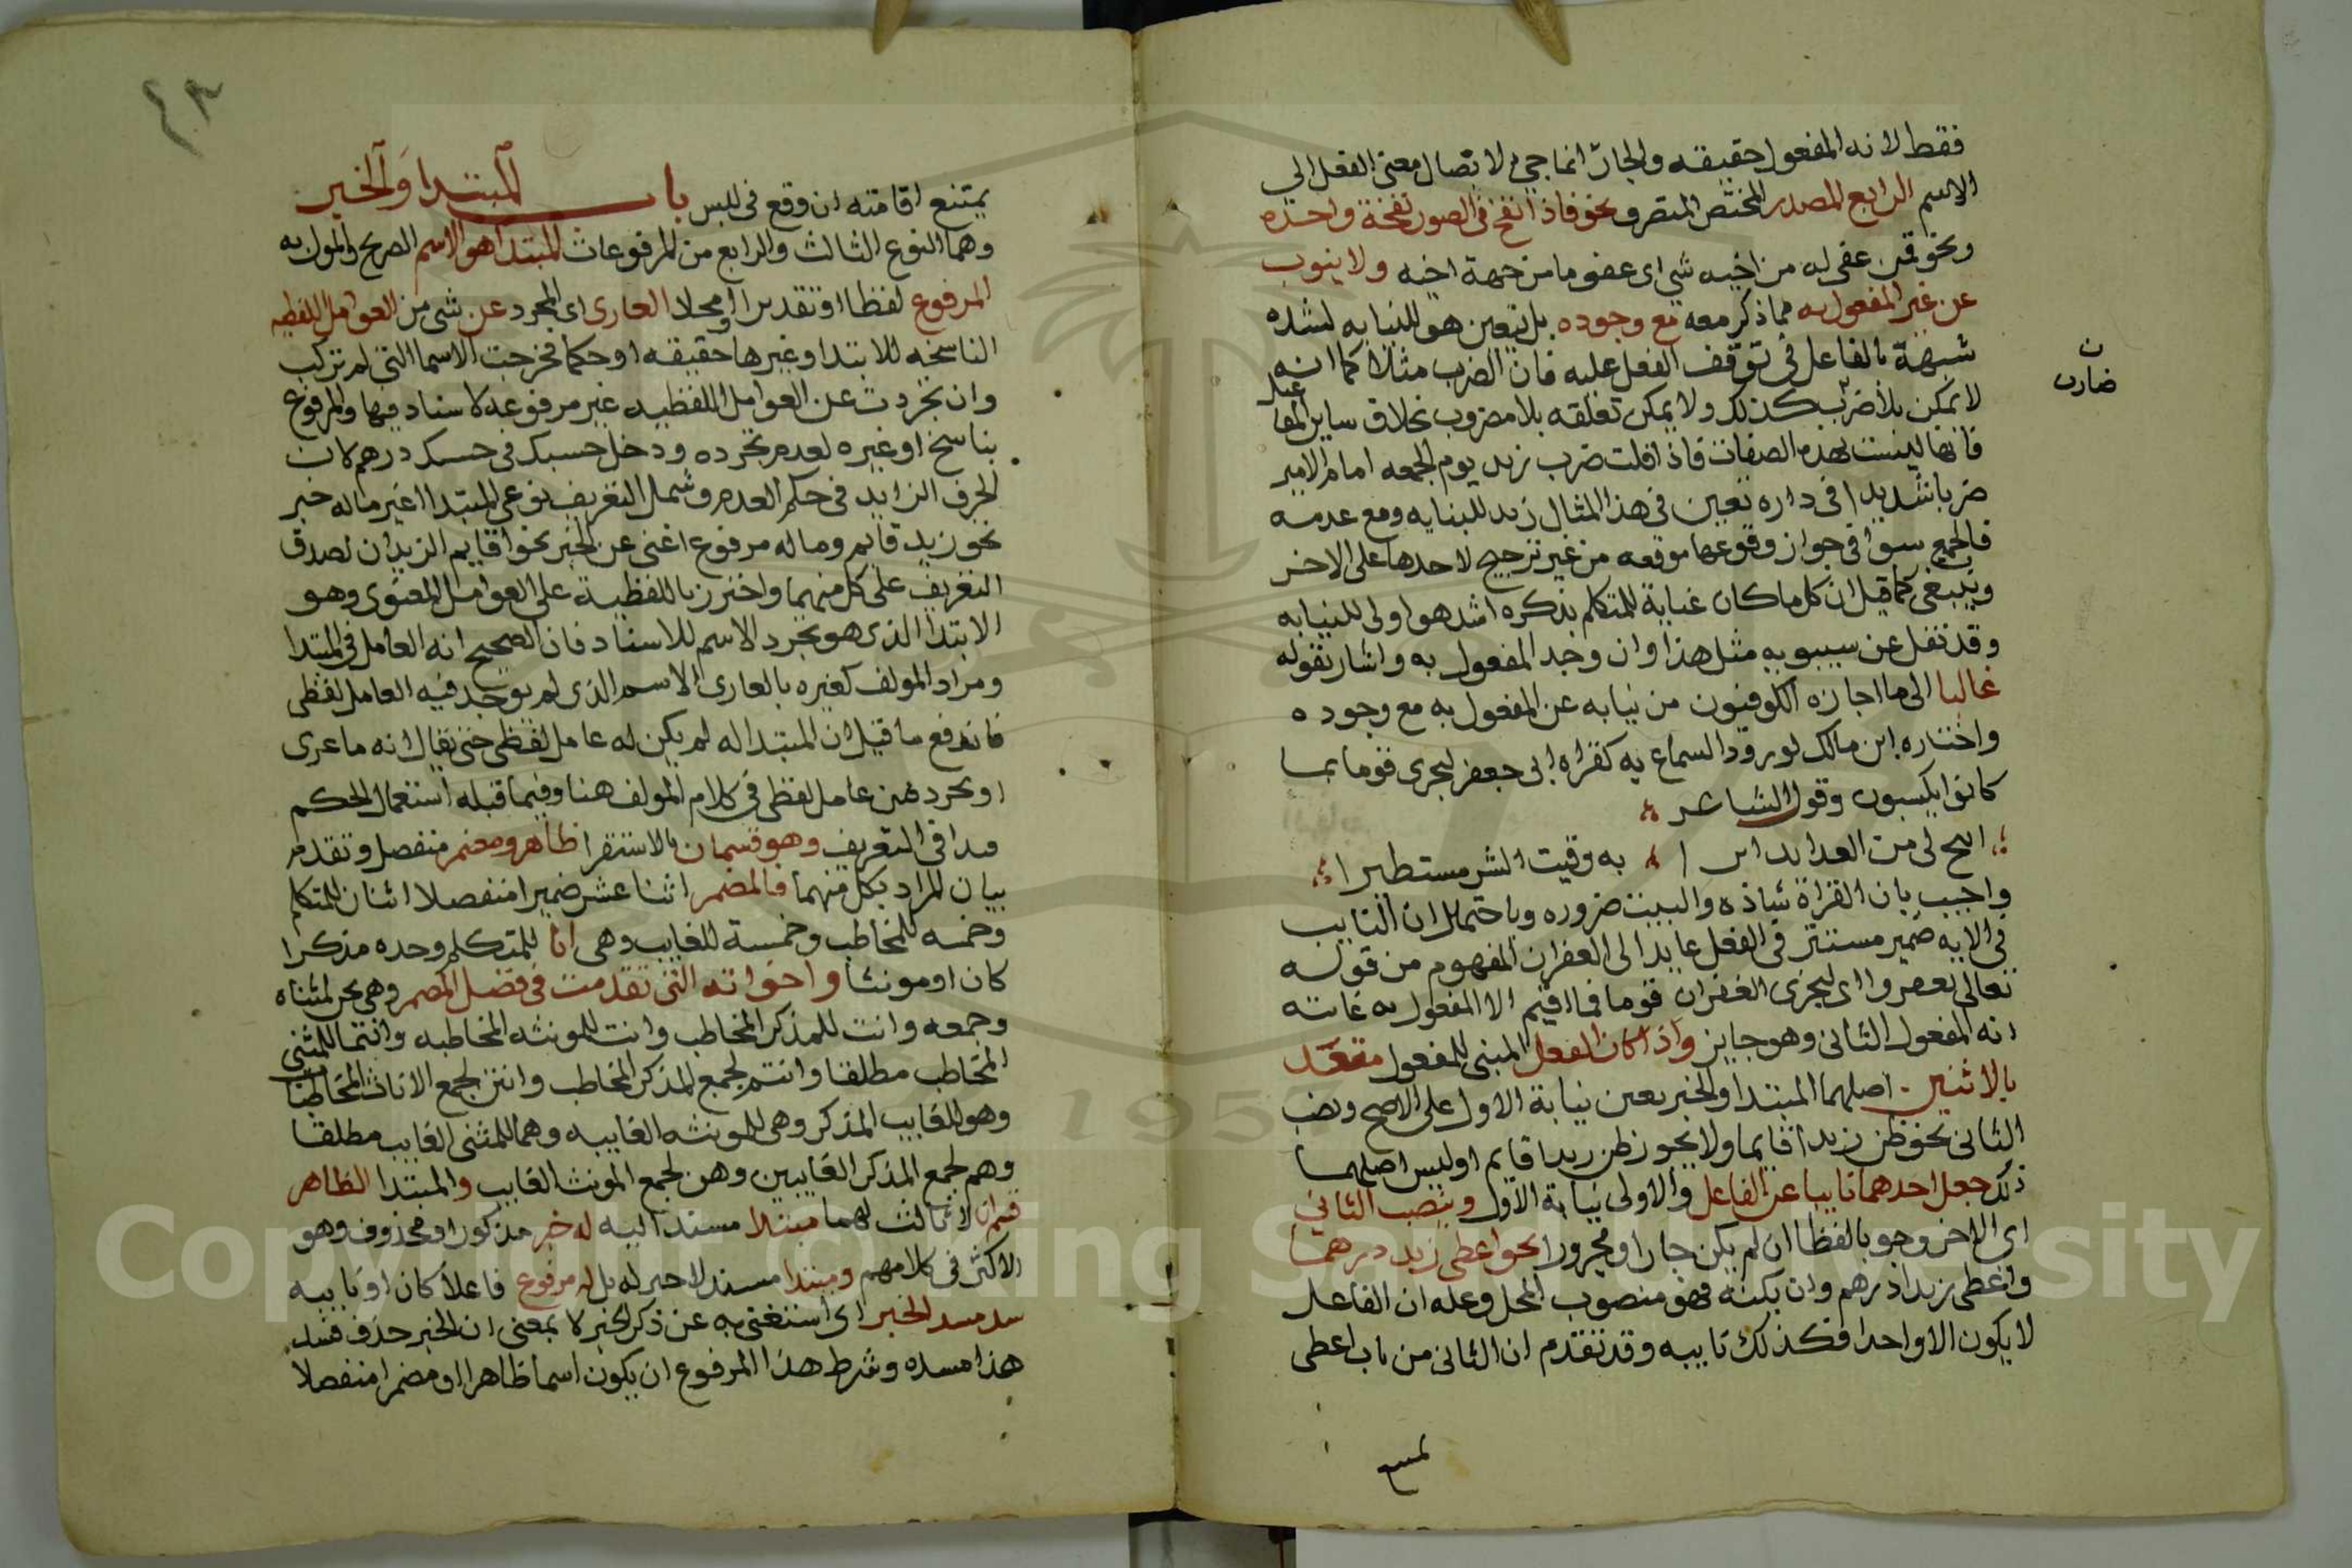 فقط لانه المفعول حقيقه والجار انما جي لاتصال معنى الفعل الي
الاسم الرابع المصدر المختص المتصرف نحو فاذا نفخ في الصور نفخة واحده
ونحو فمن عفي له من اخيه شي اى عفو ما من جهة اخيه ولا ينوب
عن غير المفعول به مما ذكر معه مع وجوده بل يتعين هو للنيابه لشده
شبهة بالفاعل في توقف الفعل عليه فان الضرب مثلا كما انه
لا يمكن بلا ضرب كذلك ولا يمكن تعلقه بلا مضروب بخلاف ساير المفاعيل
ن ضارب
فانها ليست بهذه الصفات فاذا قلت ضرب زيد يوم الجمعه امام الامير
ضربا شديدا في داره تعين في هذا المثال زيد للنيابه ومع عدمه
فالجميع سوا في جواز وقوعها موقعه من غير ترجيح لاحدها على الاخر
وينبغي كما قيل ان كل ما كان عناية المتكلم بذكره اشد هو اولى للنيابه
وقد نقل عن سيبويه مثل هذا وان وجد المفعول به واشار بقوله
غالبا الى ما اجازه الكوفيون من نيابه عن المفعول به مع وجوده
واختاره ابن مالك لورود السماع به كقراه ابى جعفر ليجزى قوما بما
كانوا يكسبون وقول الشاعر
اتيح لى من العدا نذيرا به وقيت الشر مستطيرا
واجيب بان القراة شاذه والبيت ضروره وباحتمال ان النايب
في الايه ضمير مستتر في الفعل عايد الى الغفران المفهوم من قوله
تعالى يغفروا اى ليجزى الغفران قوما فما اقيم الا المفعول به غايته
انه المفعول الثانى وهو جايز واذا كان الفعل المبنى للمفعول متعد
بالاثنين اصلهما المبتدا والخبر تعين نيابة الاول على الاصح ونصب
الثانى نحو ظن زيد قايما ولا يجوز ظن زيدا قايم او ليس اصلهما
ذلك جعل احدهما نايبا عن الفاعل والاولى نيابة الاول وينصب الثاني
اى الاخر وجوبا لفظا ان لم يكن جارا ومجرورا نحو اعطى زيد درهما
واعطى زيدا درهم وان يكنه فهو منصوب المحل وعله ان الفاعل
لا يكون الا واحدا فكذلك نايبه وقد تقدم ان الثانى من باب اعطى
يمتنع
٤٣
يمتنع اقامته ان وقع في لبس باب المبتدا والخبر
وهما النوع الثالث والرابع من المرفوعات المبتدا هو الاسم الصريح والمول به
المرفوع لفظا او تقديرا او محلا العارى اى المجرد عن شى من العوامل اللفظيه
الناسخه للابتدا وغيرها حقيقه او حكما فخرجت الاسما التى لم تركب
وان تجردت عن العوامل اللفظيه غير مرفوعه لا اسناد فيها والمرفوع
بناسخ او غيره لعدم تجرده ودخل حسبك فى بحسبك درهم لان
الحرف الزايد في حكم العدم وشمل التعريف نوعى المبتدا اعني ماله خبر
نحو زيد قايم وماله مرفوع اغنى عن الخبر نحو اقايم الزيدان لصدق
التعريف على كل منهما واحترز باللفظية على العوامل المعنوى وهو
الابتدا الذى هو تجرد الاسم للاسناد فان الصحيح انه العامل في المبتدا
ومراد المولف كغيره بالعارى الاسم الذى لم يوجد فيه العامل لفظى
فاندفع ما قيل ان المبتدا له لم يكن له عامل لفظى حتى يقال انه ما عرى
او تجرد من عامل لفظى في كلام المولف هنا وفيما قبله استعمال الحكم
مدا في التعريف وهو قسمان بالاستقرا ظاهر ومضمر منفصل وتقدم
بيان المراد بكل منهما فالمضمر اثنا عشر ضميرا منفصلا اثنان للمتكلم
وخمسه للمخاطب وخمسة للغايب وهى انا للمتكلم وحده مذكرا
كان او مونثا واخواته التى تقدمت في فصل المضمر وهى نحن لمثناه
وجمعه وانت للمذكر المخاطب وانت للمونثه المخاطبه وانتما للمثنى
المخاطب مطلقا وانتم لجمع المذكر المخاطب وانتن لجمع الاناث المخاطبات
وهو للغايب المذكر وهى للمونثه الغايبه وهما للمثنى الغايب مطلقا
وهم لجمع المذكر الغايبين وهن لجمع المونث الغايب والمبتدا الظاهر
قسمان لا ثالث لهما مبتدا مسند اليه له خبر مذكور او محذوف وهو
الاكثر في كلامهم ومبتدا مسند لا خبر له بل له مرفوع فاعلا كان او نايبه
سد مسد الخبر اى استغنى به عن ذكر الخبر لا بمعنى ان الخبر حذف فسد
هذا مسده وشرط هذا المرفوع ان يكون اسما ظاهرا او مضمرا منفصلا
Copyright © King Saud University
195